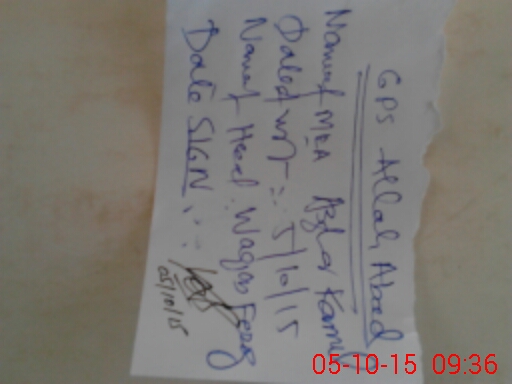 GPS Allah Abad
Name of MEA Azhar Kamil
Dated : 5/10/15
Name of Head : Waqas
Date SIGN :
05/10/15
05-10-15 09:36